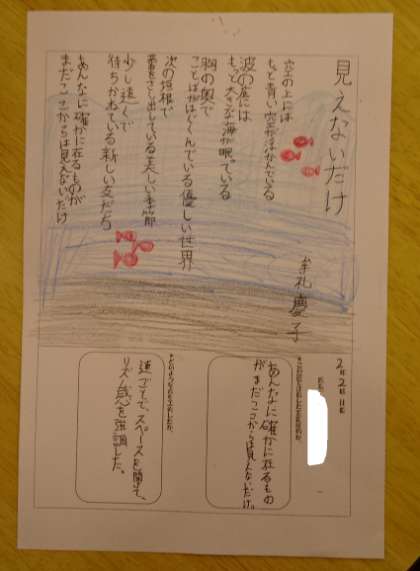 見えないだけ
牟礼慶子
空の上には
もっと青い空が浮かんでいる
波の底には
もっと大きな海が眠っている
胸の奥で
ことばがはぐくんでいる優しい世界
次の垣根で
蕾をさし出している美しい季節
少し遠くで
待ちかねている新しい友だち
あんなに確かに在るものが
まだここからは見えないだけ
2年2組11番
あんなに確かに在るもの
がまだここからは見えないだけ。
連ごとで、スペースを開けて、
リズム感を強調した。